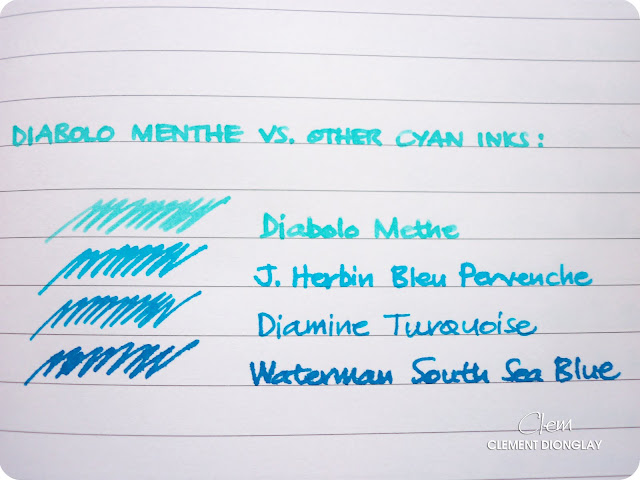 DIABOLO MENTHE VS. OTHER CYAN INKS:
Diabolo Methe
J. Herbin Bleu Pervenche
Diamine Turquoise
Waterman South Sea Blue
Clem
CLEMENT DIONGLAY